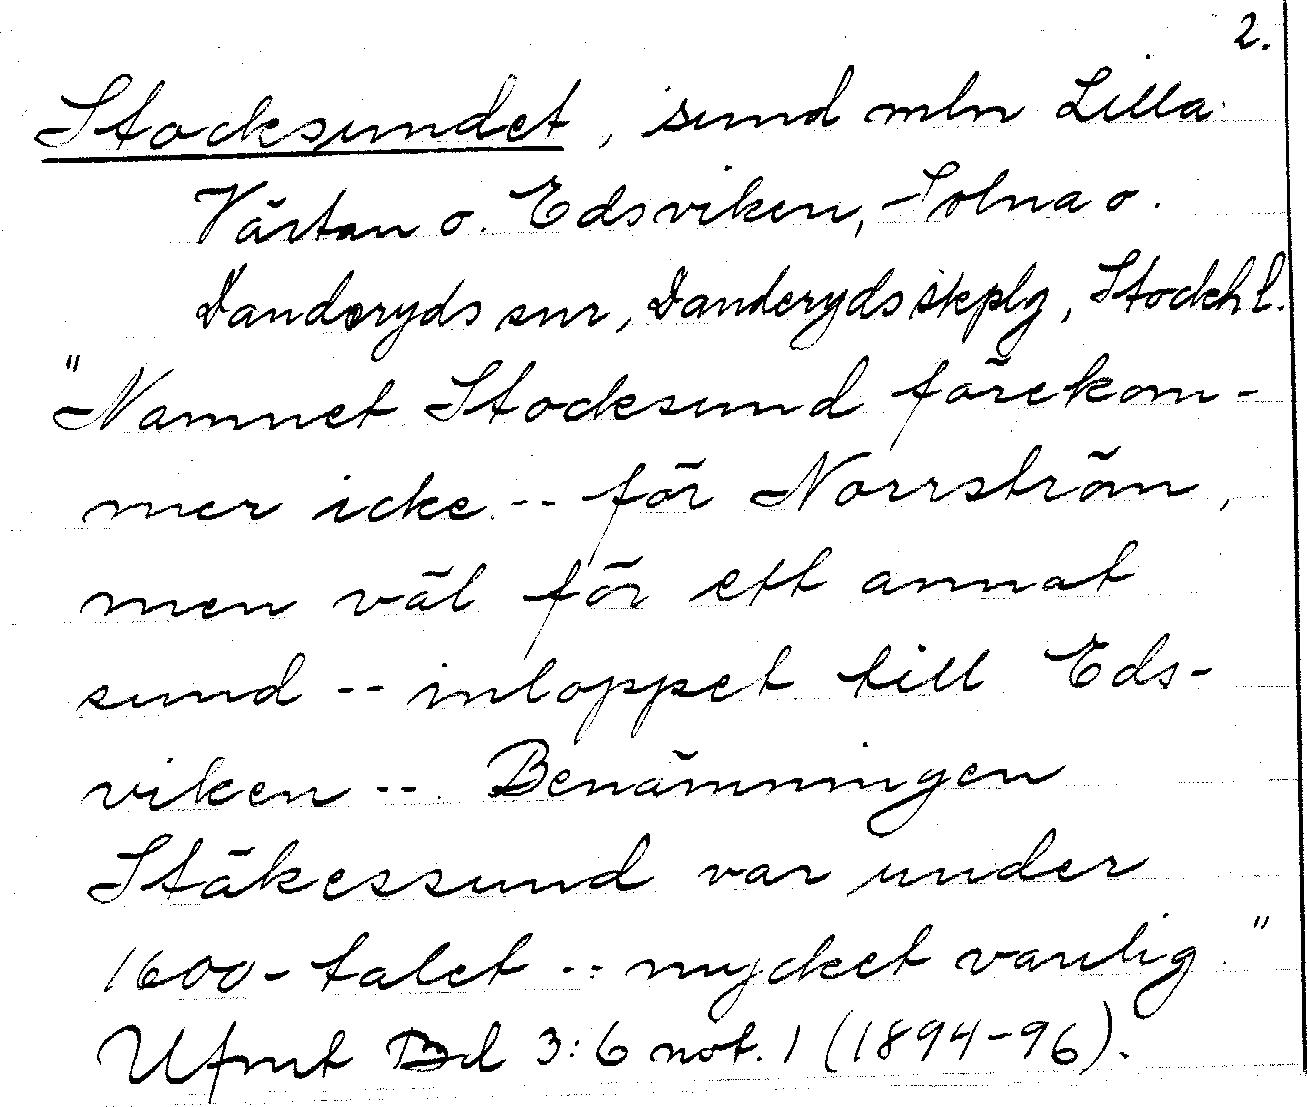 2.
Stocksundet, sund mln Lilla
Värtan o. Edsviken, Solna o.
Danderyds snr, Danderyds skplg, Stockh l.
"Namnet Stocksund förekom-
mer icke -- för Norrström,
men väl för ett annat
sund -- inloppet till Eds-
viken -- Benämningen
Stäkessund var under
1600-talet -- mycket vanlig."
Ufmt Bd 3:6 not. 1 (1894-96).